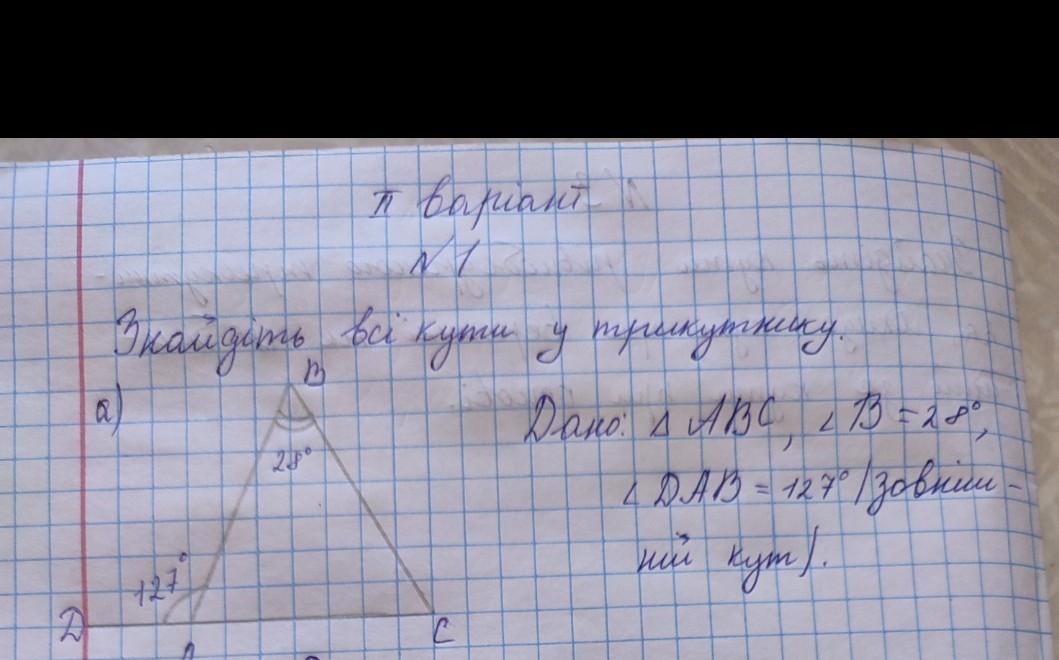 II варіант
N 1
Знайдіть всі кути у трикутнику.
а)
B
28°
127°
D
C
Дано: Δ ABC, ∠B = 28°,
∠DAB = 127° /зовніш-
ній кут/.